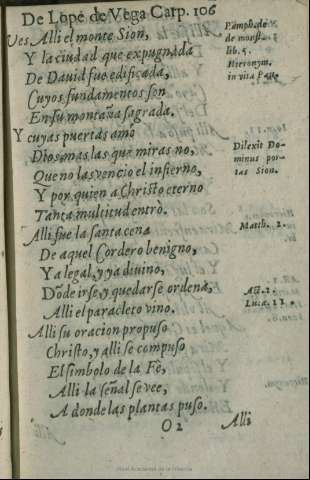 De Lope de Vega Carp. 106
Ves Alli el monte Sion,
Y la ciudad que expugnada
De Dauid fue edificada,
Cuyos fundamentos son
En su montaña sagrada.
Y cuyas puertas amo
Dios mas las que miras no,
Que no las vencio el infierno,
Y por quien a Christo eterno
Tanta multitud entrò.
Alli fue la santa cena
De aquel Cordero benigno,
Ya legal, y ya diuino,
Dōde irse, y quedarse ordena,
Alli el paracleto vino.
Alli su oracion propuso
Christo, y alli se compuso
El simbolo de la Fè,
Alli la señal se vee,
A donde las plantas puso.
O 2 Alli
de
lib. 5.
Hieronym.
in vita
Dilexit Do-
minus por-
tas Sion.
Matth. 2.
Act. 2.
Luca. 22.
Real Academia de la Historia